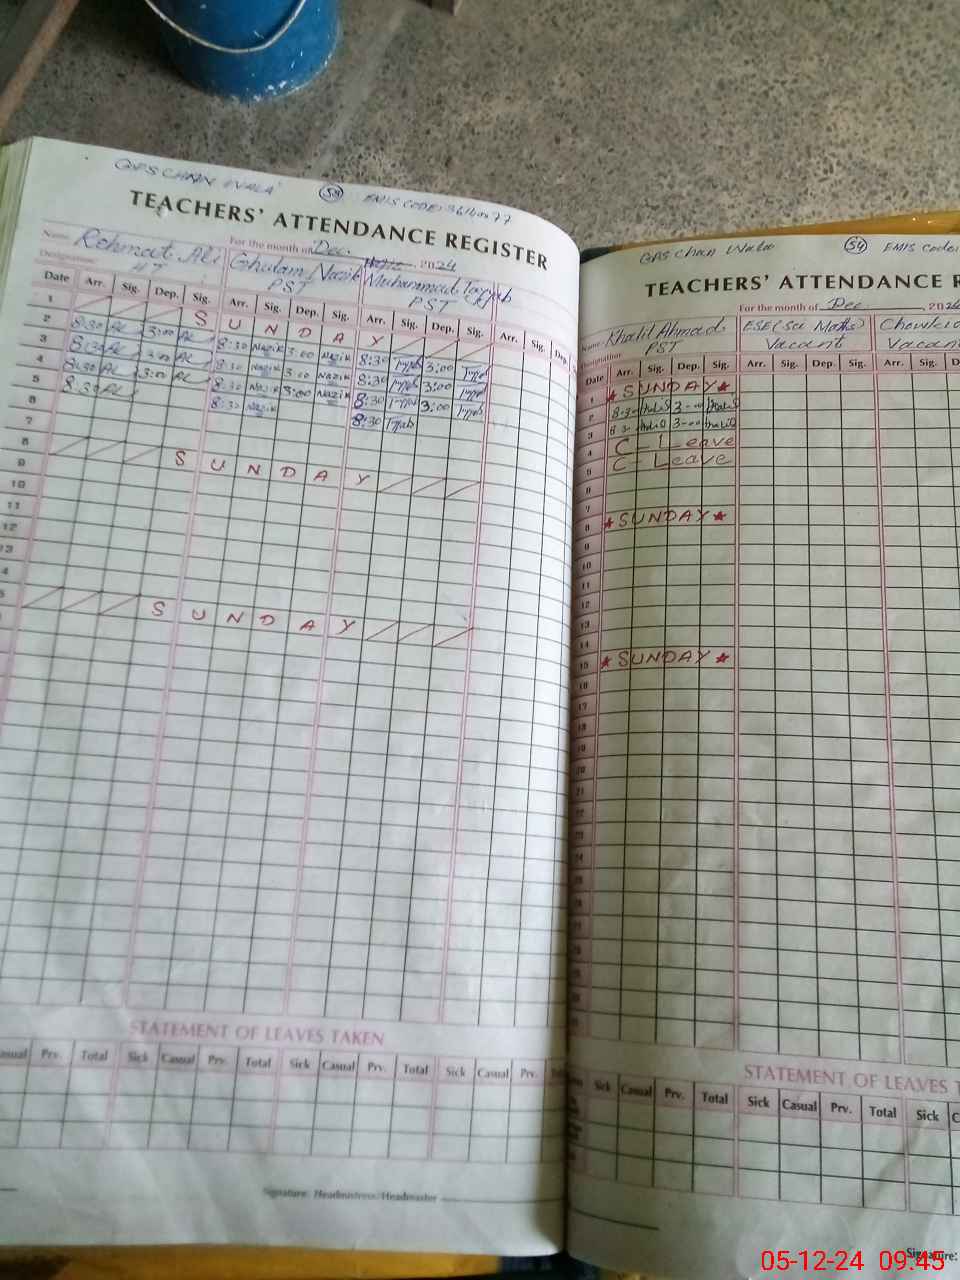 GPS CHAN WALA 54 EMIS CODE:
TEACHERS' ATTENDANCE REGISTER
Name Rehmat Ali For the month of Dec. 2024
Designation
Ghulam Nazik Muhammad Tayyab
PST PST
Date Arr. Sig. Dep. Sig. Arr. Sig. Dep. Sig. Arr. Sig. Dep. Sig. Arr. Sig. Dep.
1 S U N D A Y
2 8:30 AL 3:00 AL 8:30 Nazik 3:00 Nazik 8:30 Tyyb 3:00 Tyyb
3 8:30 AL 3:00 AL 8:30 Nazik 3:00 Nazik 8:30 Tyyb 3:00 Tyyb
4 8:30 AL 3:00 AL 8:30 Nazik 3:00 Nazik 8:30 Tyyb 3:00 Tyyb
5 8:30 AL 8:30 Nazik 8:30 Tyyb
6
7
8 S U N D A Y
9
10
11
12
13
4
5 S U N D A Y
STATEMENT OF LEAVES TAKEN
Casual Prv. Total Sick Casual Prv. Total Sick Casual Prv. Total Sick Casual Prv.
Signature: Headmistress/Headmaster
GPS Chan Wala 54 EMIS Code:
TEACHERS' ATTENDANCE R
For the month of Dec. 2024
Name Khalil Ahmad ESE (Sci Maths) Chowki
Designation PST Vacant Vacan
Date Arr. Sig. Dep. Sig. Arr. Sig. Dep. Sig. Arr. Sig. D
1 ★ SUNDAY ★
2 8-30 Khalil 3-00 Khalil
3 8-30 Khalil 3-00 Khalil
4 C - Leave
5 C - Leave
6
7
8 ★ SUNDAY ★
9
10
11
12
13
14
15 ★ SUNDAY ★
16
17
18
19
20
21
22
23
24
25
26
27
28
29
30
31
STATEMENT OF LEAVES T
Sick Casual Prv. Total Sick Casual Prv. Total Sick C
Signature:
05-12-24 09:45